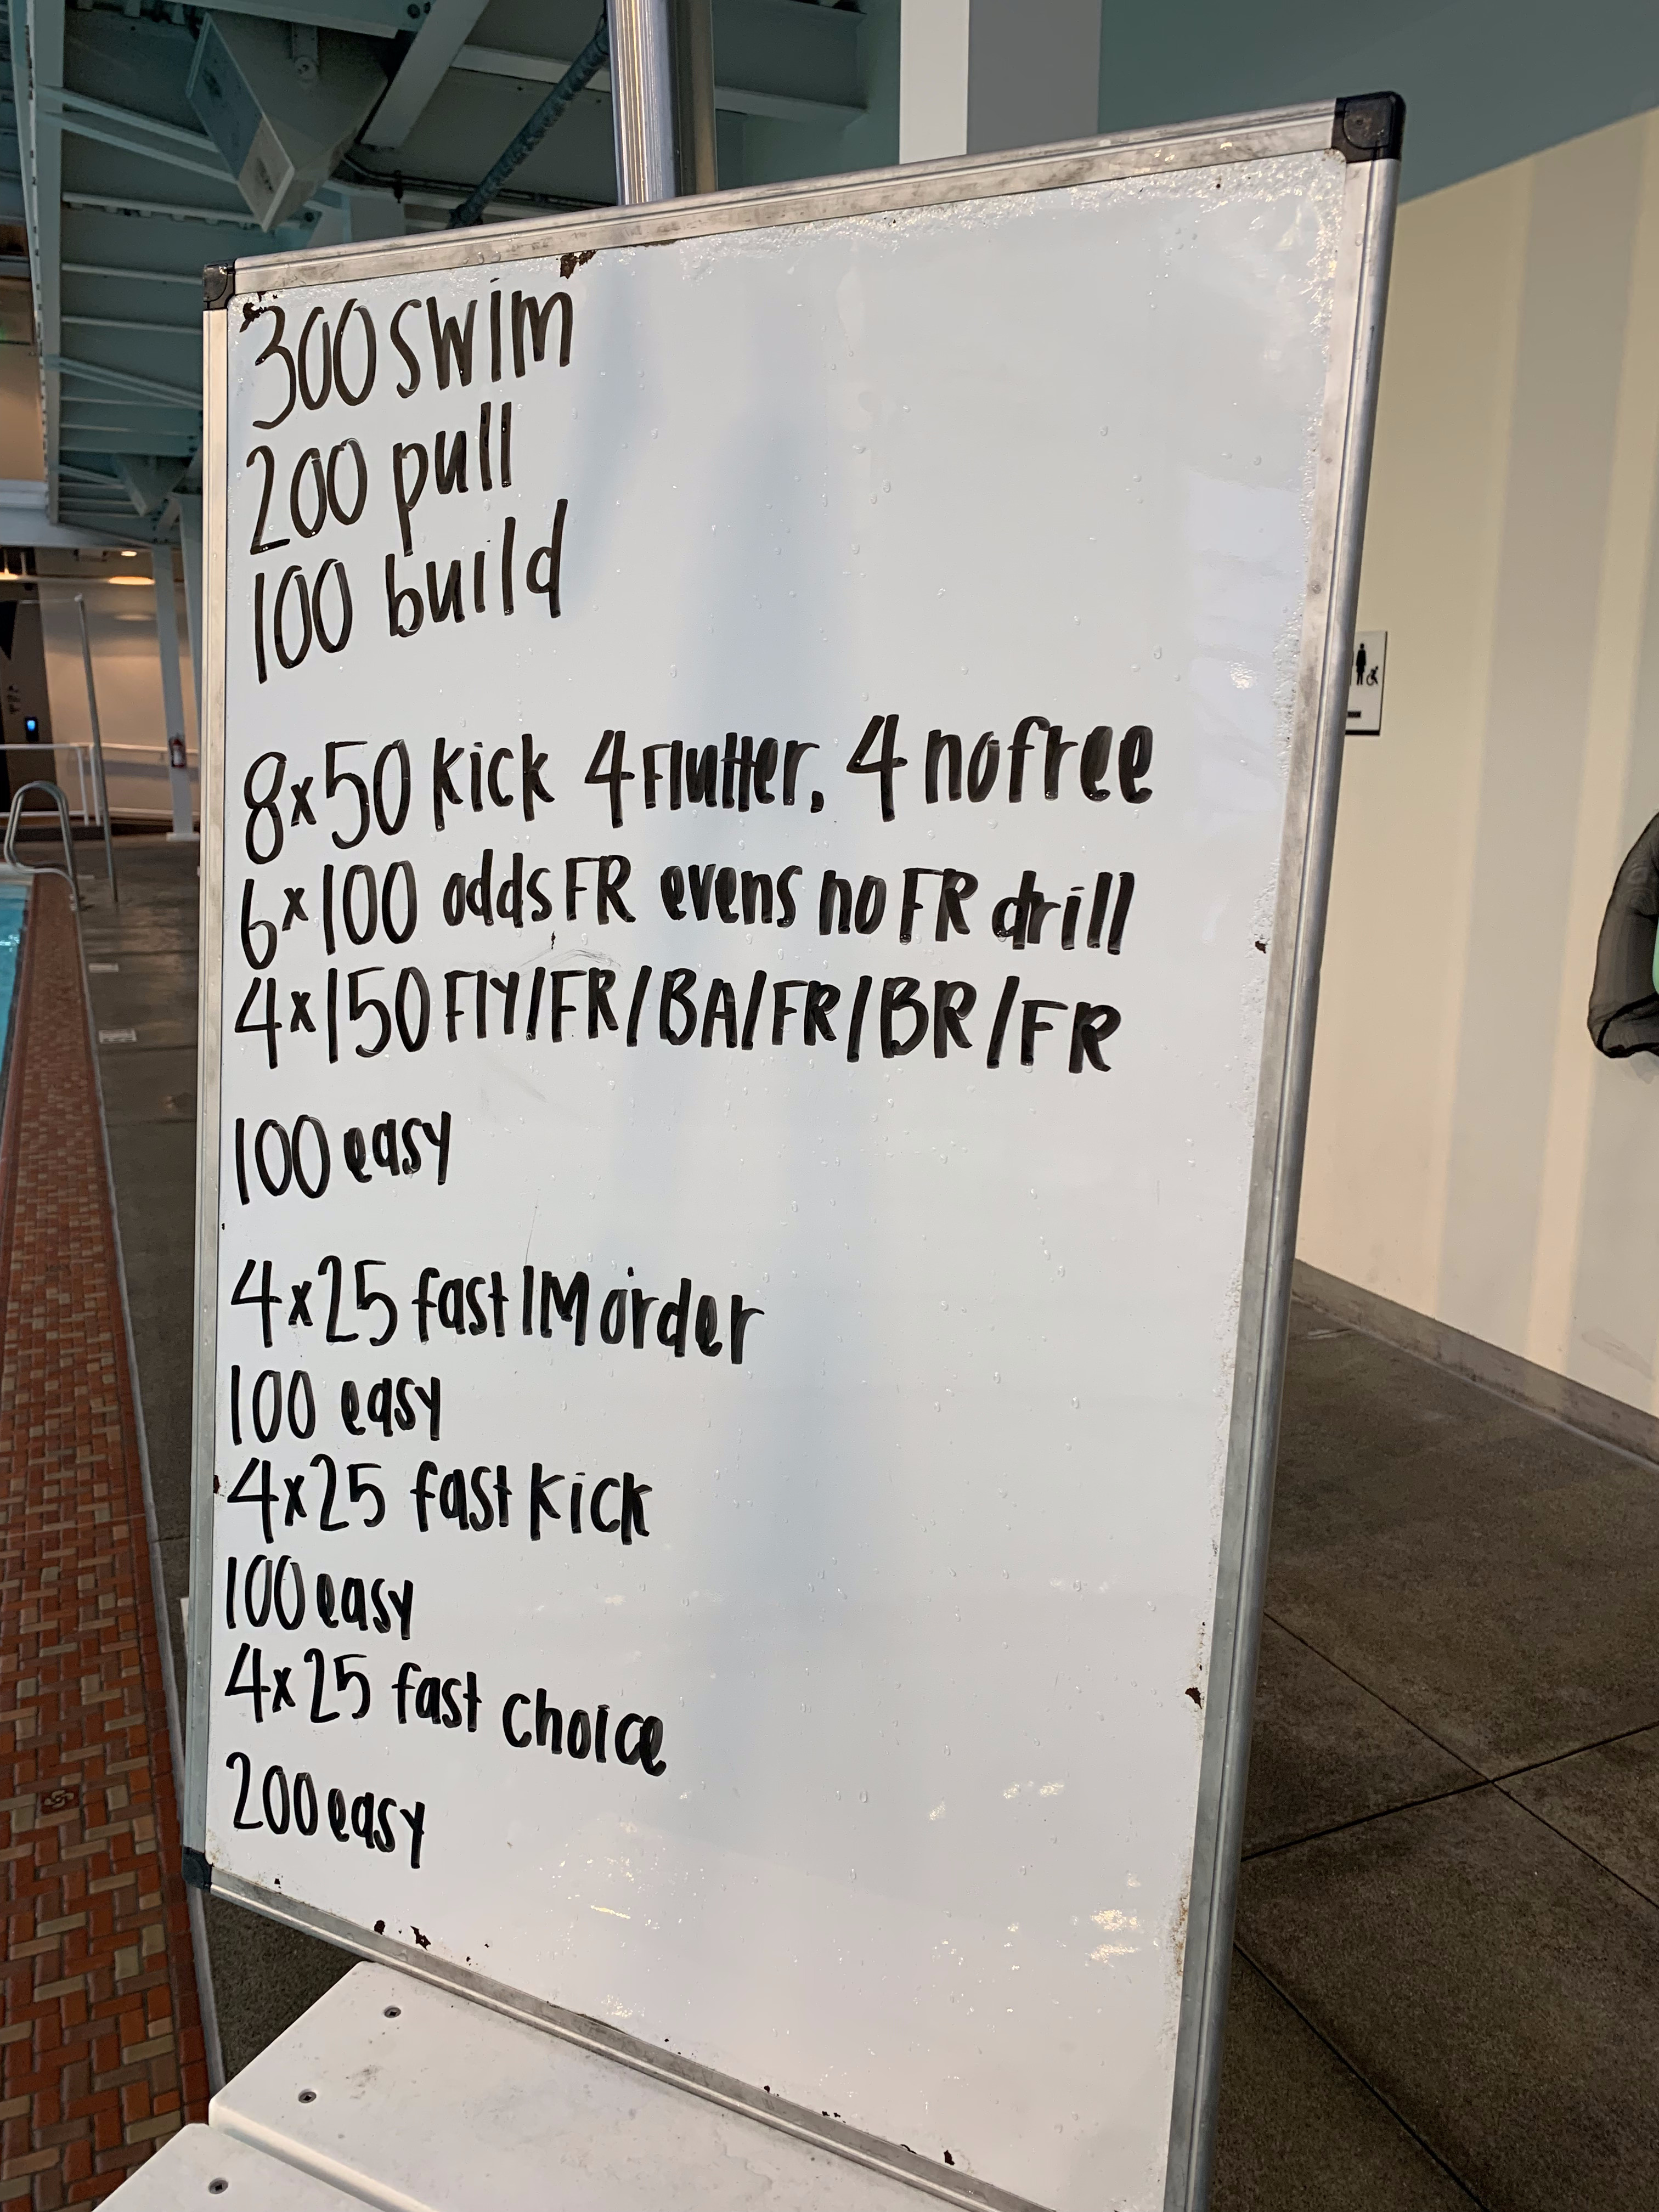 300 swim
200 pull
100 build
8x50 kick 4 Flutter, 4 no free
6x100 odds FR evens no FR drill
4x150 FlY/FR/BA/FR/BR/FR
100 easy
4x25 fast IM order
100 easy
4x25 fast kick
100 easy
4x25 fast choice
200 easy